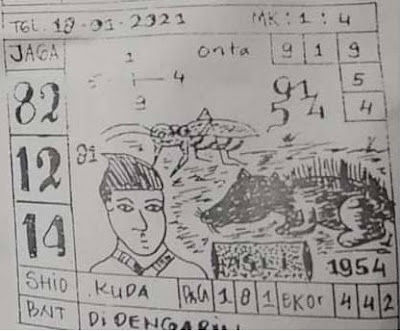 TGL. 18-01-2021 MK: 1 : 4
JAGA 1 onta 9 1 9
5 4 91 5
9 54 4
82
12 91
14
ASLI 1954
SHIO KUDA 1 8 1 EKOR 4 4 2
BNT DIDENGARIN